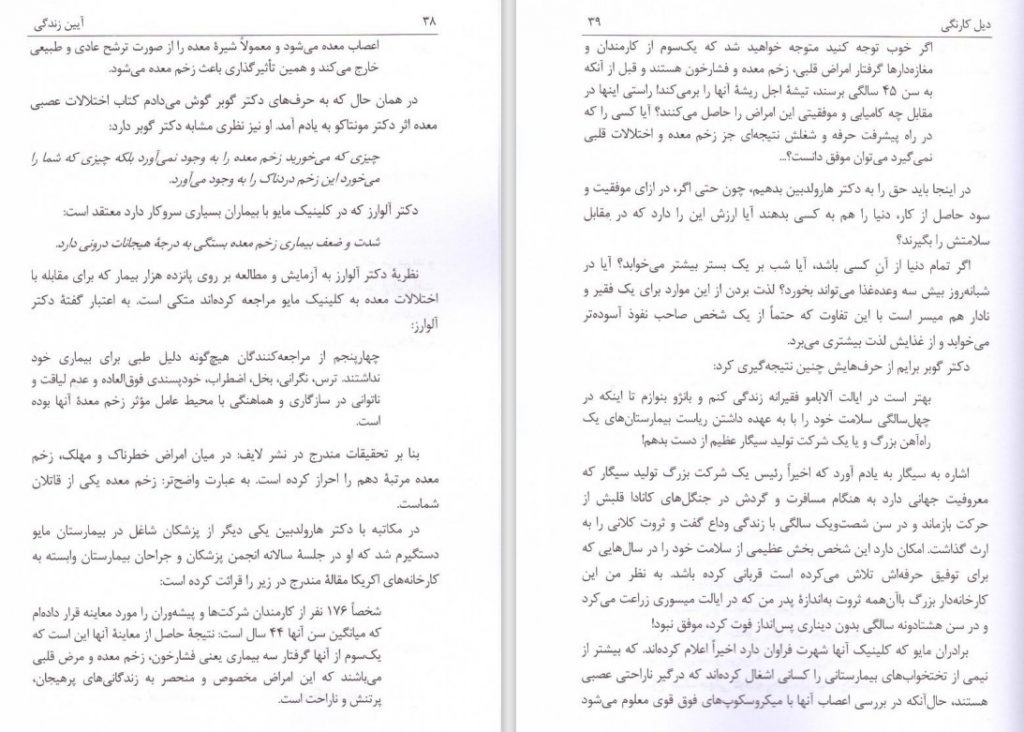 آیین زندگی
۳۸
اعصاب معده می‌شود و معمولاً شیرهٔ معده را از صورت ترشح عادی و طبیعی
خارج می‌کند و همین تأثیرگذاری باعث زخم معده می‌شود.
در همان حال که به حرف‌های دکتر گوبر گوش می‌دادم کتاب اختلالات عصبی
معده اثر دکتر مونتاکو به یادم آمد. او نیز نظری مشابه دکتر گوبر دارد:
چیزی که می‌خورید زخم معده را به وجود نمی‌آورد بلکه چیزی که شما را
می‌خورد این زخم دردناک را به وجود می‌آورد.
دکتر آلوارز که در کلینیک مایو با بیماران بسیاری سروکار دارد معتقد است:
شدت و ضعف بیماری زخم معده بستگی به درجهٔ هیجانات درونی دارد.
نظریهٔ دکتر آلوارز به آزمایش و مطالعه بر روی پانزده هزار بیمار که برای مقابله با
اختلالات معده به کلینیک مایو مراجعه کرده‌اند متکی است. به اعتبار گفتهٔ دکتر
آلوارز:
چهارپنجم از مراجعه‌کنندگان هیچ‌گونه دلیل طبی برای بیماری خود
نداشتند. ترس، نگرانی، بخل، اضطراب، خودپسندی فوق‌العاده و عدم لیاقت و
ناتوانی در سازگاری و هماهنگی با محیط عامل مؤثر زخم معدهٔ آنها بوده
است.
بنا بر تحقیقات مندرج در نشر لایف: در میان امراض خطرناک و مهلک، زخم
معده مرتبهٔ دهم را احراز کرده است. به عبارت واضح‌تر: زخم معده یکی از قاتلان
شماست.
در مکاتبه با دکتر هارولدبین یکی دیگر از پزشکان شاغل در بیمارستان مایو
دستگیرم شد که او در جلسهٔ سالانه انجمن پزشکان و جراحان بیمارستان وابسته به
کارخانه‌های اکریکا مقالهٔ مندرج در زیر را قرائت کرده است:
شخصاً ۱۷۶ نفر از کارمندان شرکت‌ها و پیشه‌وران را مورد معاینه قرار داده‌ام
که میانگین سن آنها ۴۴ سال است: نتیجهٔ حاصل از معاینهٔ آنها این است که
یک‌سوم از آنها گرفتار سه بیماری یعنی فشارخون، زخم معده و مرض قلبی
می‌باشند که این امراض مخصوص و منحصر به زندگانی‌های پرهیجان،
پرتنش و ناراحت است.
۳۹
دیل کارنگی
اگر خوب توجه کنید متوجه خواهید شد که یک‌سوم از کارمندان و
مغازه‌دارها گرفتار امراض قلبی، زخم معده و فشارخون هستند و قبل از آنکه
به سن ۴۵ سالگی برسند، تیشهٔ اجل ریشهٔ آنها را برمی‌کند! راستی اینها در
مقابل چه کامیابی و موفقیتی این امراض را حاصل می‌کنند؟ آیا کسی را که
در راه پیشرفت حرفه و شغلش نتیجه‌ای جز زخم معده و اختلالات قلبی
نمی‌گیرد می‌توان موفق دانست؟...
در اینجا باید حق را به دکتر هارولدبین بدهیم، چون حتی اگر، در ازای موفقیت و
سود حاصل از کار، دنیا را هم به کسی بدهند آیا ارزش این را دارد که در مقابل
سلامتش را بگیرند؟
اگر تمام دنیا از آنِ کسی باشد، آیا شب بر یک بستر بیشتر می‌خوابد؟ آیا در
شبانه‌روز بیش سه وعده‌غذا می‌تواند بخورد؟ لذت بردن از این موارد برای یک فقیر و
نادار هم میسر است با این تفاوت که حتماً از یک شخص صاحب نفوذ آسوده‌تر
می‌خوابد و از غذایش لذت بیشتری می‌برد.
دکتر گوبر برایم از حرف‌هایش چنین نتیجه‌گیری کرد:
بهتر است در ایالت آلابامو فقیرانه زندگی کنم و بانژو بنوازم تا اینکه در
چهل‌سالگی سلامت خود را با به عهده داشتن ریاست بیمارستان‌های یک
راه‌آهن بزرگ و یا یک شرکت تولید سیگار عظیم از دست بدهم!
اشاره به سیگار به یادم آورد که اخیراً رئیس یک شرکت بزرگ تولید سیگار که
معروفیت جهانی دارد به هنگام مسافرت و گردش در جنگل‌های کانادا قلبش از
حرکت بازماند و در سن شصت‌ویک سالگی با زندگی وداع گفت و ثروت کلانی را به
ارث گذاشت. امکان دارد این شخص بخش عظیمی از سلامت خود را در سال‌هایی که
برای توفیق حرفه‌اش تلاش می‌کرده است قربانی کرده باشد. به نظر من این
کارخانه‌دار بزرگ باآن‌همه ثروت به‌اندازهٔ پدر من که در ایالت میسوری زراعت می‌کرد
و در سن هشتادونه سالگی بدون دیناری پس‌انداز فوت کرد، موفق نبود!
برادران مایو که کلینیک آنها شهرت فراوان دارد اخیراً اعلام کرده‌اند. که بیشتر از
نیمی از تختخواب‌های بیمارستانی را کسانی اشغال کرده‌اند که درگیر ناراحتی عصبی
هستند، حال‌آنکه در بررسی اعصاب آنها با میکروسکوپ‌های فوق قوی معلوم می‌شود